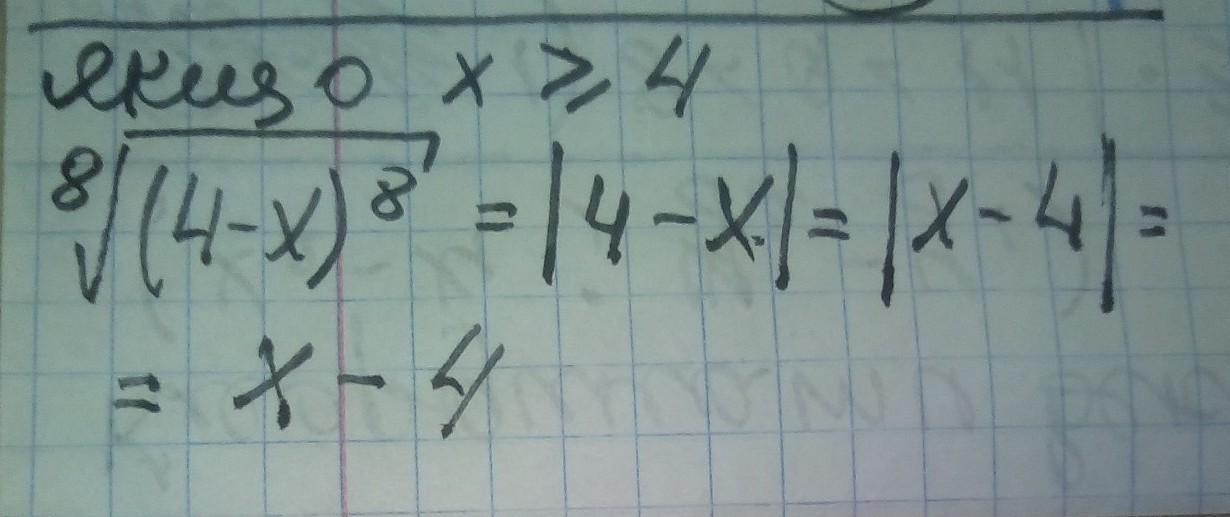 якщо x ⩾ 4
⁸√(4-x)⁸ = |4-x| = |x-4| =
= x - 4